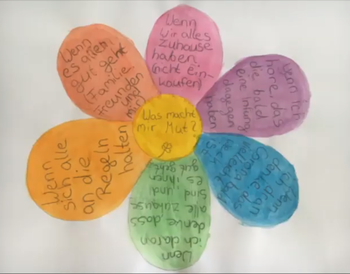 Was macht
mir Mut?
Wenn
wir alles
zuhause
haben.
(nicht ein-
kaufen)
Wenn ich
höre, das
die bald
eine
dagegen
haben
Wenn
ich dran
denke das
Wenn
ich daran
denke, dass
alle zuhause
sind, und
es ihnen
gut geht
Wenn
sich alle
an die
Regeln
halten
Wenn
es allen
gut geht
(Familie,
Freunden